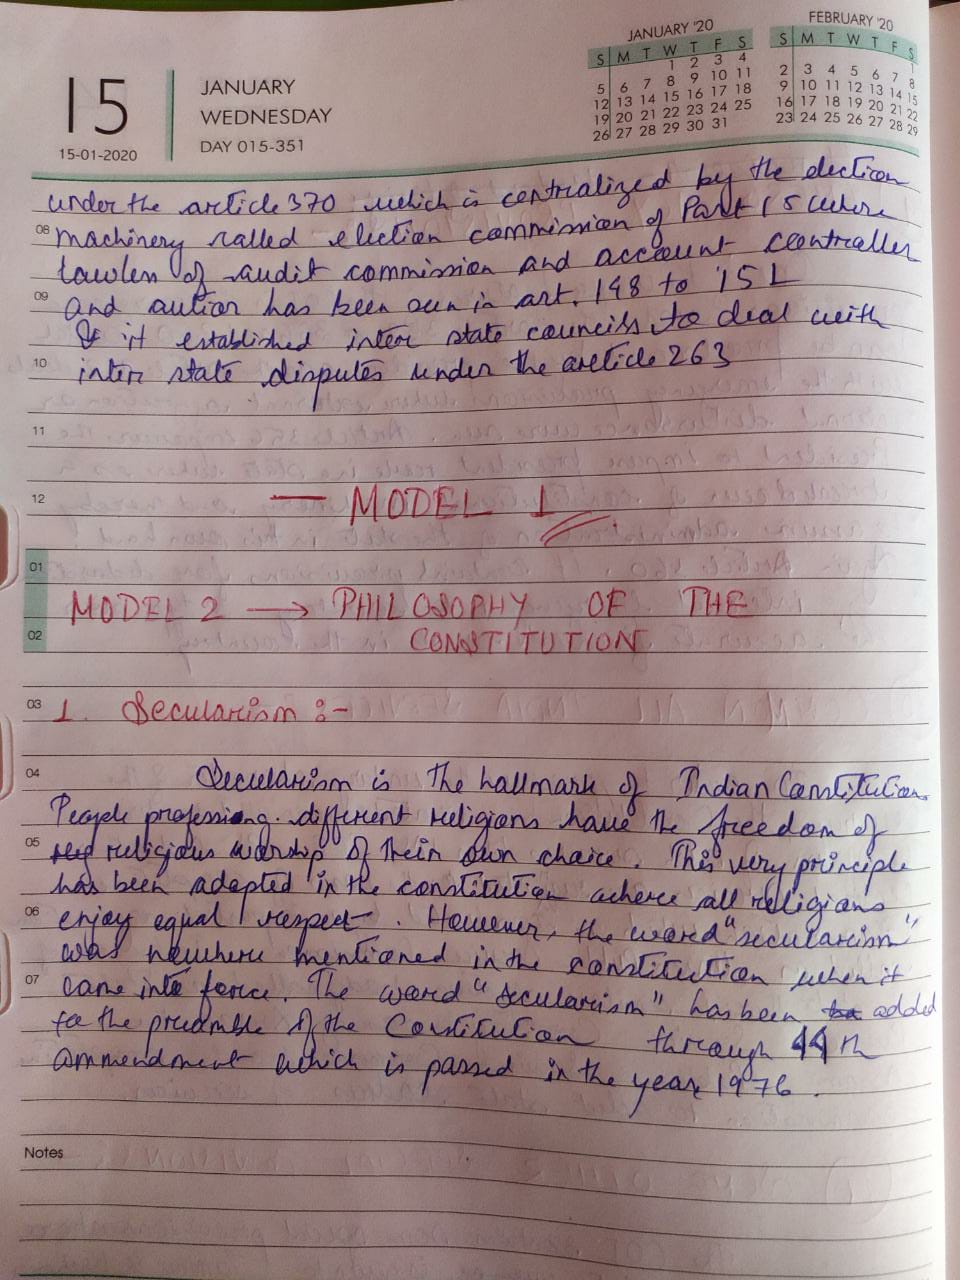 JANUARY '20
S M T W T F S
1 2 3 4
5 6 7 8 9 10 11
12 13 14 15 16 17 18
19 20 21 22 23 24 25
26 27 28 29 30 31
FEBRUARY '20
S M T W T F S
1
2 3 4 5 6 7 8
9 10 11 12 13 14 15
16 17 18 19 20 21 22
23 24 25 26 27 28 29
15
15-01-2020
JANUARY
WEDNESDAY
DAY 015-351
under the article 370 which is centrialized by the election
08 machinery called election commission of Part 15 where
of audit commission and account controller
09 and has been in art. 148 to 151
it established inter state councils to deal with
10 inter state disputes under the article 263
11
12 — MODEL 1
01
MODEL 2 → PHILOSOPHY OF THE
02 CONSTITUTION
03 1. Secularism :-
04 Secularism is the hallmark of Indian Constitution.
People professing different religions have the freedom of
05 religious worship of their own choice. This very principle
has been adapted in the constitution where all religions
06 enjoy equal respect. However, the word "secularism"
was nowhere mentioned in the constitution when it
07 came into force. The word "secularism" has been added
to the preamble of the Constitution through 44th
ammendment which is passed in the year 1976.
Notes